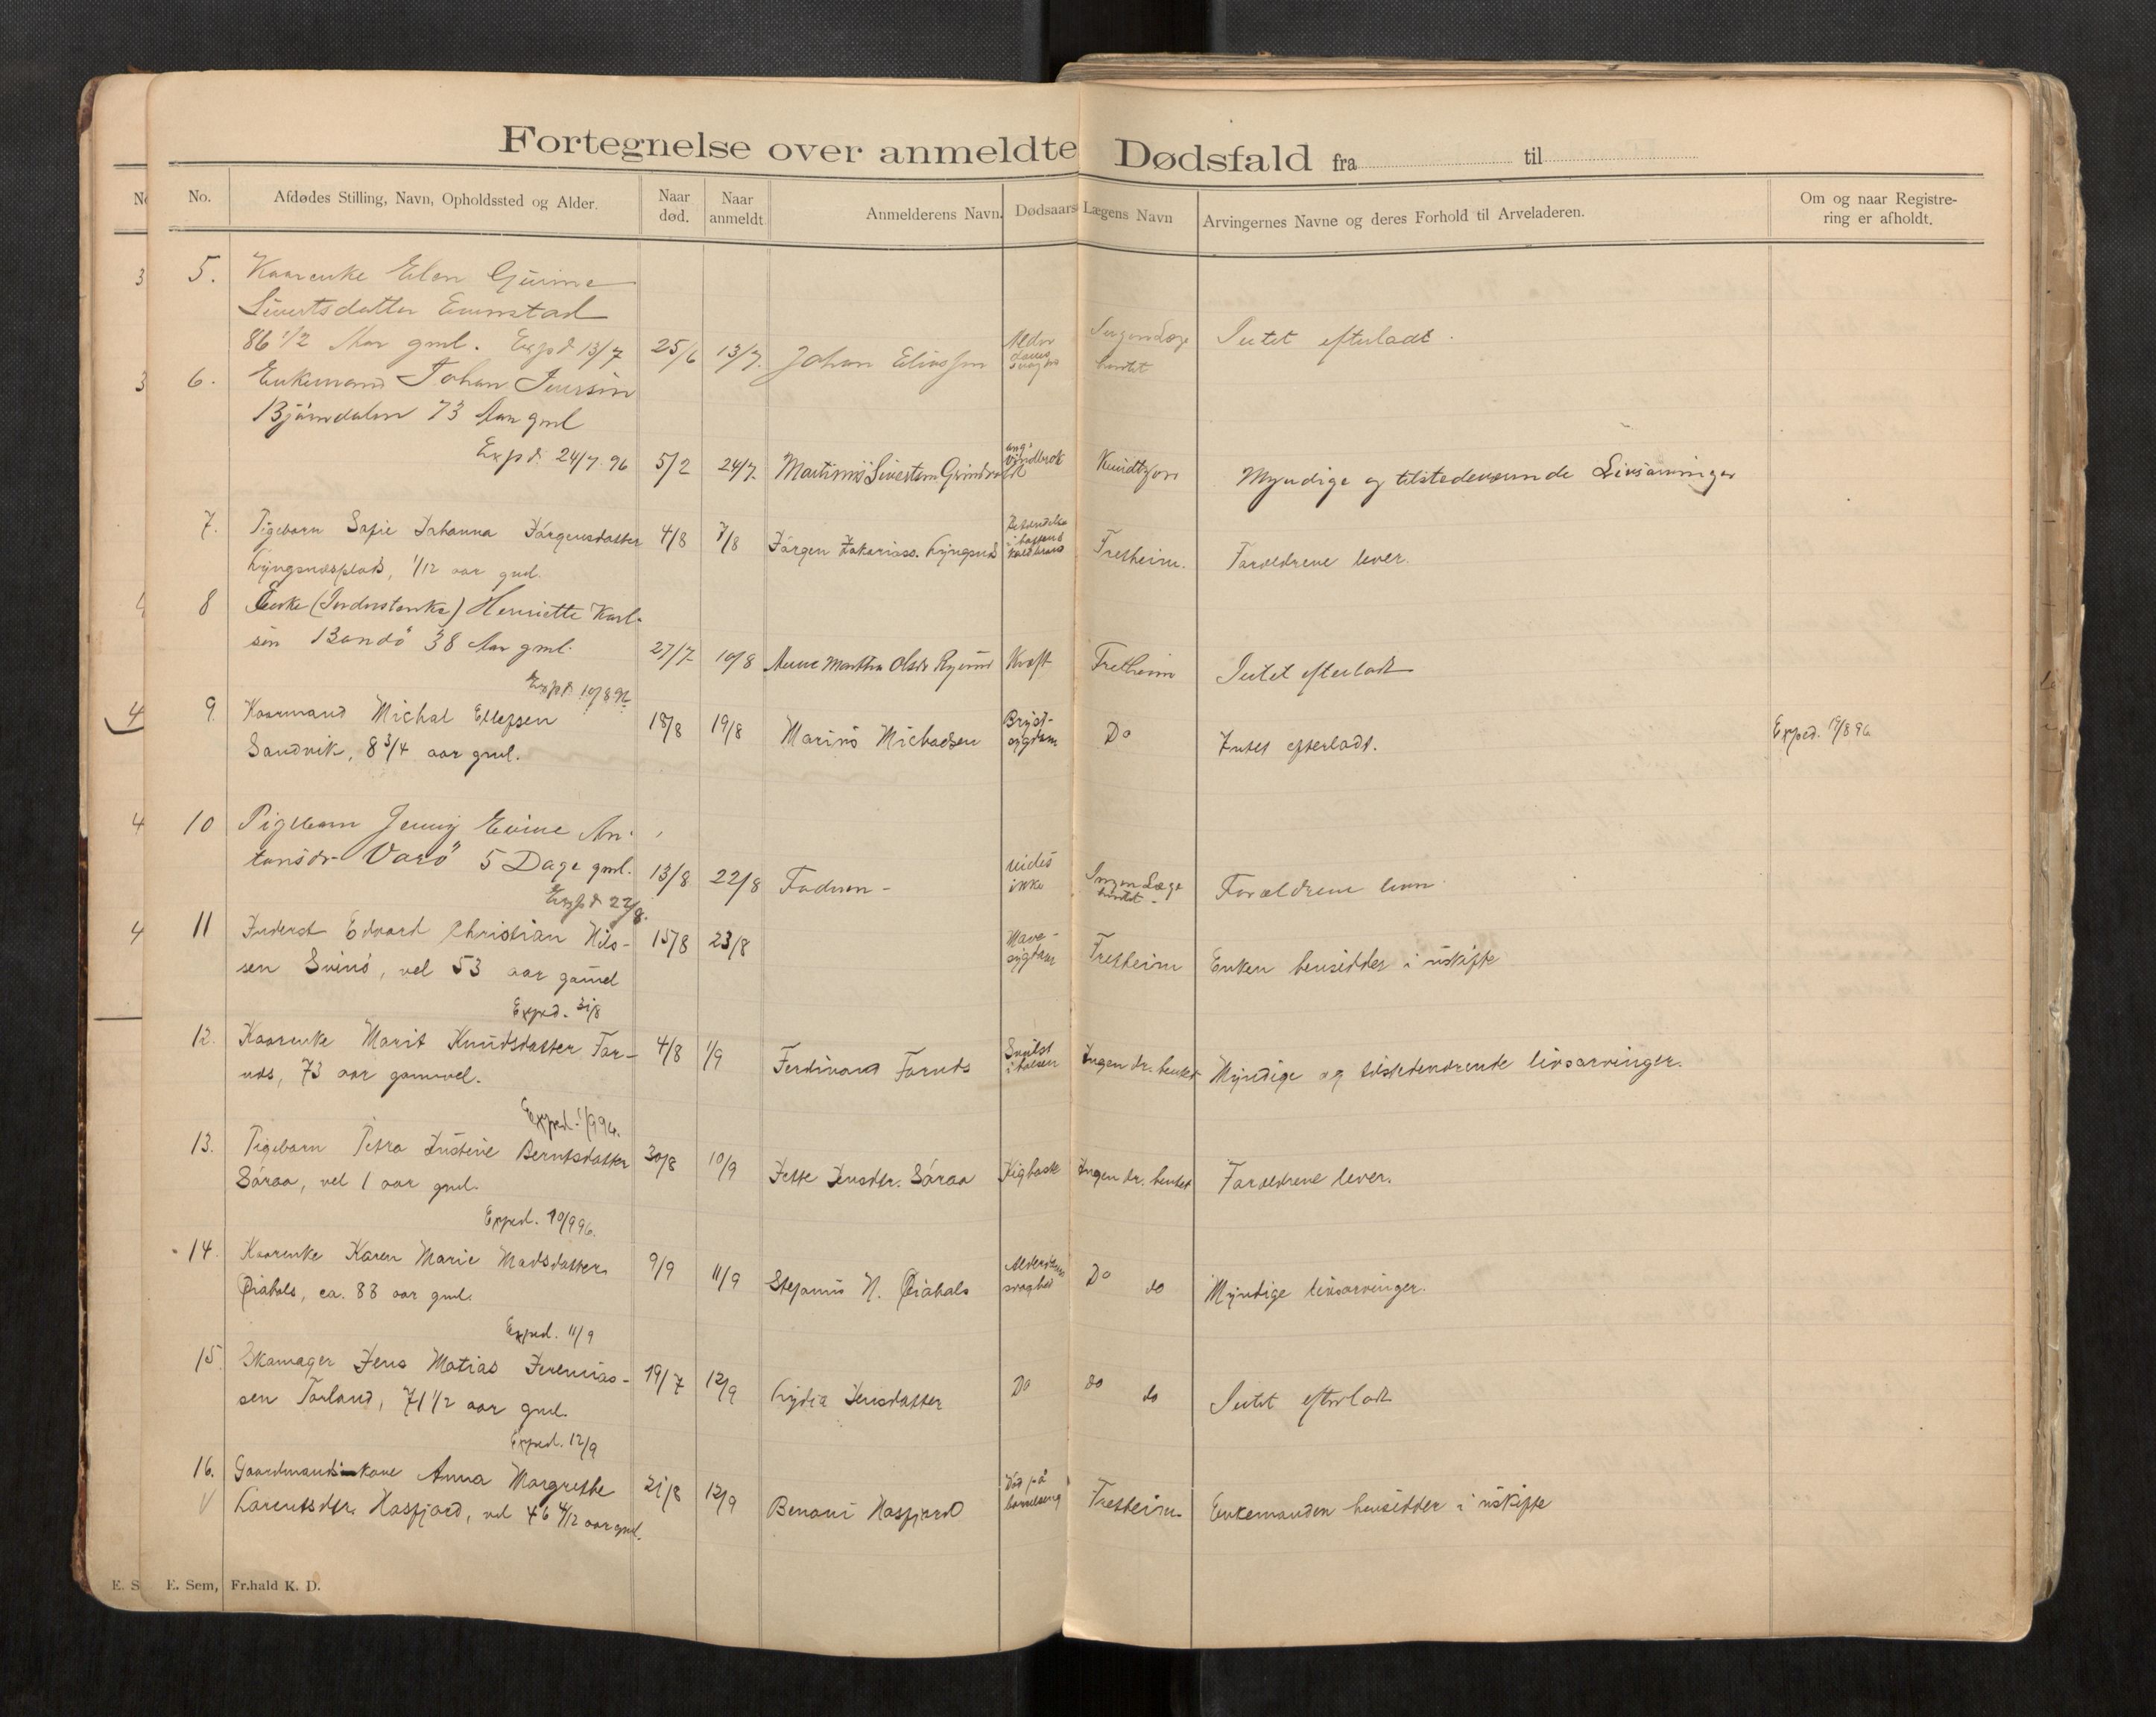 Fortegnelse over anmeldte Dødsfald fra til
No. Afdødes Stilling, Navn, Opholdssted og Alder. Naar død. Naar anmeldt Anmelderens Navn. Dødsaars Lægens Navn Arvingernes Navne og deres Forhold til Arveladeren. Om og naar Registrering er afholdt.
5. Kaarenke Elen
Sivertsdatter
86 1/2 Aar gml. Expd 13/7 25/6 13/7. Johan Eliassen Intet efterladt.
6. Enkemand Johan Jensen
Bjørndalen 73 Aar gml
Expd. 24/7 96 5/2 24/7 Martinus Sivertsen Myndige og tilstedeværende Livsarvinger
7. Pigebarn Sofie Johanna Jörgensdatter 4/8 7/8 Jörgen Zakariass. Lyngsnes Fretheim. Forældrene lever.
Lyngsnesplads, 1/12 aar gml.
8 Enke (Inderstenke) Henriette Karl-
sen Bondö 38 Aar gml. 27/7 10/8 Anne Martha Olsdr Kræft Fretheim Intet efterladt
Expd. 10/8 96
9. Kaarmand Michal Ellefsen 18/8 19/8 Marius Michaelsen Bryst-
sygdom Do Intet efterladt. Exped. 19/8 96
Sandvik, 8 3/4 aar gml.
10 Pigebarn Jenny Evine An-
tonsdr Varö 5 Dage gml. 13/8 22/8 Faderen - vides
ikke Ingen Læge
hentet - Forældrene lever
Expd 22/8.
11 Inderst Edvard Christian Nils- 15/8 23/8 Mave-
sygdom Fretheim Enken hensidder i uskifte
sen Svinö, vel 53 aar gamel
Exped. 31/8
12. Kaarenke Marit Knudsdatter For- 4/8 1/9 Ferdinand Fornes Svulst
i halsen Ingen dr. hentet Myndige og tilstedeværende livsarvinger.
nes, 73 aar gammel.
Exped. 1/9 96.
13. Pigebarn Petra Justine Berntsdatter 30/8 10/9 Jette Jensdr. Söraa Kighoste Ingen dr. hentet Forældrene lever.
Söraa, vel 1 aar gml.
Exped. 10/9 96.
14. Kaarenke Karen Marie Madsdatter 9/9 11/9 Stefanus N. Alderdoms
svaghed Do do Myndige livsarvinger.
ca. 88 aar gml.
Exped. 11/9
15. Skomager Jens Matias Jeremias- 19/7 12/9 Lydia Jensdatter Do do do Intet efterladt
sen Torland, 71 1/2 aar gml.
Exped. 12/9
16. Gaardmandskone Anna Margrethe 21/8 12/9 Benoni Hasfjord Död på
barselseng Fretheim. Enkemanden hensidder i uskifte
Lorentsdtr. Hasfjord, vel 46 4/12 aar gml.
E. Sem, Fr.hald K. D.